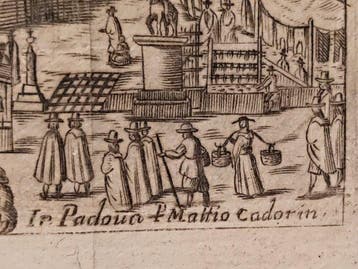 In Padoua P Mattio Cadorin.